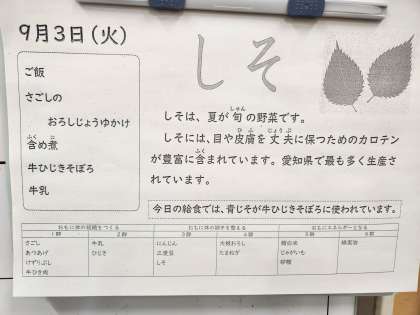 9月3日(火)
ご飯
さごしの
おろしじょうゆかけ
ふく に
含め煮
牛ひじきそぼろ
牛乳
しそ
しゅん
しそは、夏が旬の野菜です。
ひ ふ じょうぶ
しそには、目や皮膚を丈夫に保つためのカロテン
ふく
が豊富に含まれています。愛知県で最も多く生産さ
れています。
今日の給食では、青じそが牛ひじきそぼろに使われています。
おもに体の組織をつくる おもに体の調子を整える おもにエネルギーとなる
1群 2群 3群 4群 5群 6群
さごし 牛乳 にんじん 大根おろし 精白米 綿実油
あつあげ ひじき 三度豆 たまねぎ じゃがいも
けずりぶし しそ 砂糖
牛ひき肉